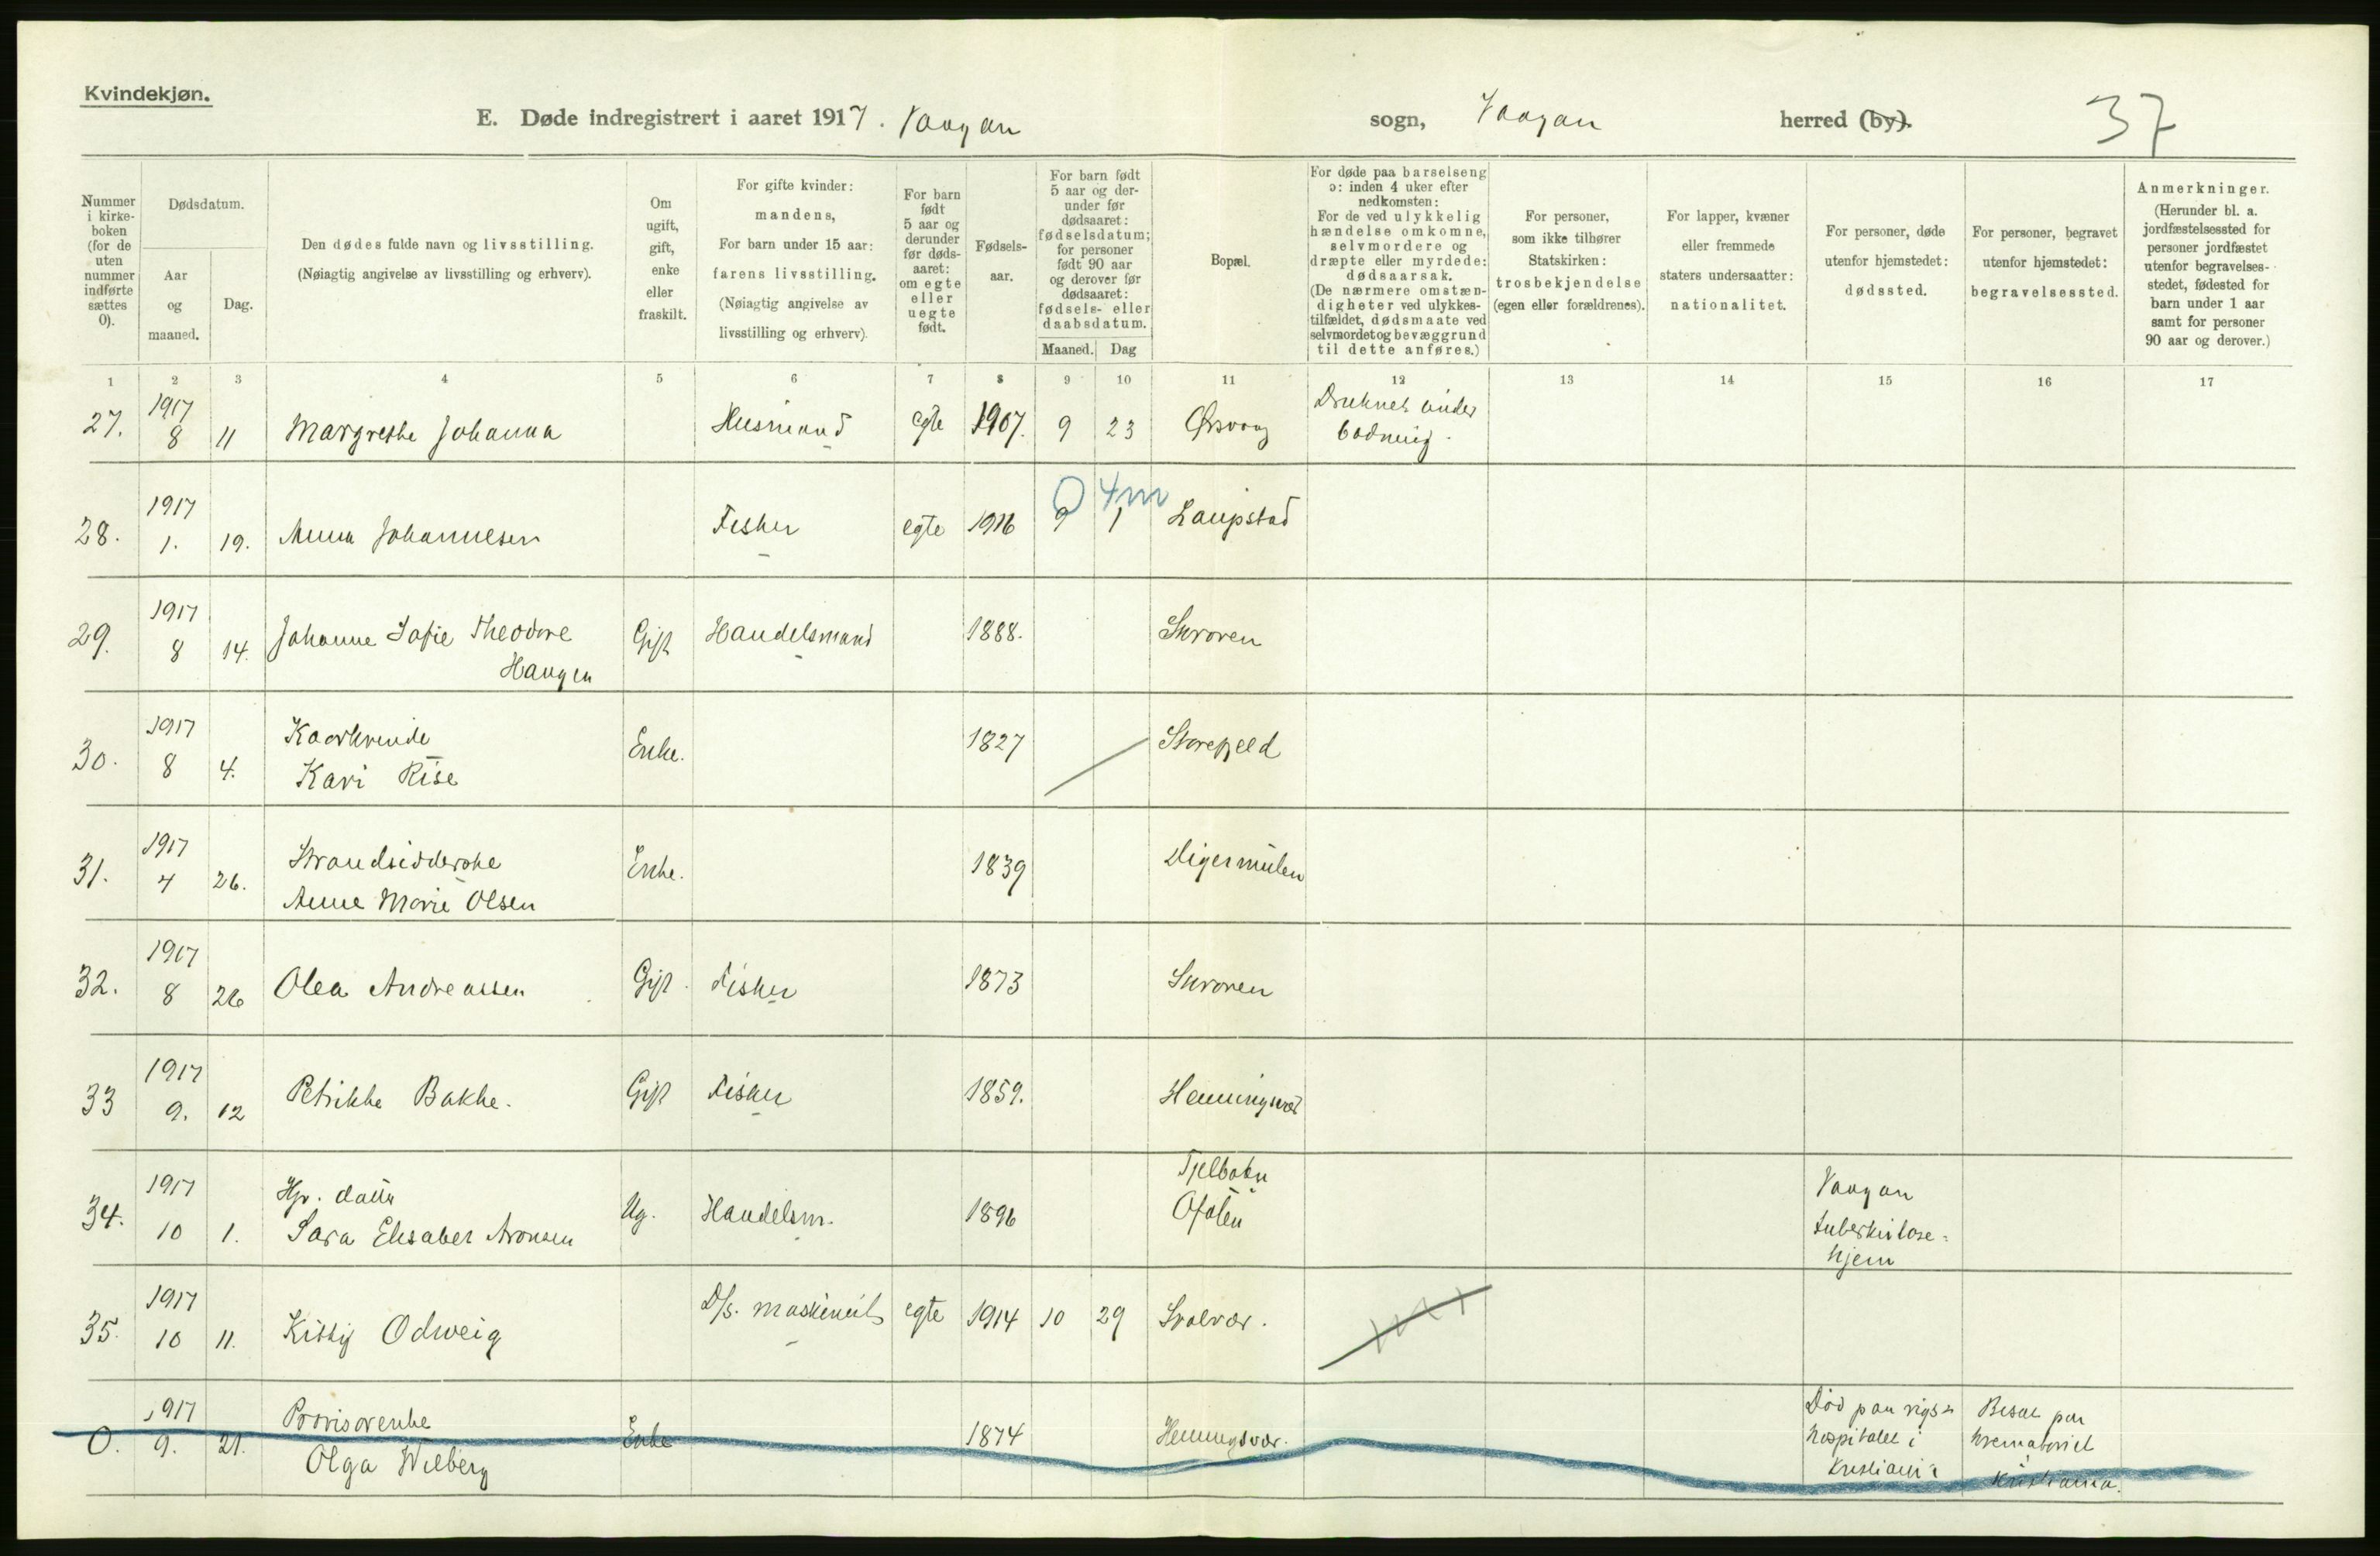 Kvindekjøn.
E. Døde indregistrert i aaret 1917. Vaagan sogn, Vaagan herred (by). 37
Nummer i kirke-boken (for de uten nummer indførte sættes 0).
Dødsdatum.
Aar og maaned.
Dag.
Den dødes fulde navn og livsstilling.
(Nøiagtig angivelse av livsstilling og erhverv).
Om ugift, gift, enke eller fraskilt.
For gifte kvinder: mandens,
For barn under 15 aar: farens livsstilling.
(Nøiagtig angivelse av livsstilling og erhverv).
For barn født 5 aar og derunder før døds-aaret: om egte eller uegte født.
Fødsels-aar.
For barn født 5 aar og der-under før dødsaaret: fødselsdatum; for personer født 90 aar og derover før dødsaaret: fødsels- eller daabsdatum.
Maaned. Dag
Bopæl.
For døde paa barselseng ɔ: inden 4 uker efter nedkomsten:
For de ved ulykkelig hændelse omkomne, selvmordere og dræpte eller myrdede: dødsaarsak.
(De nærmere omstæn-digheter ved ulykkes-tilfældet, dødsmaate ved selvmordet og bevæggrund til dette anføres.)
For personer, som ikke tilhører Statskirken: trosbekjendelse (egen eller forældrenes).
For lapper, kvæner eller fremmede staters undersaatter: nationalitet.
For personer, døde utenfor hjemstedet: dødssted.
For personer, begravet utenfor hjemstedet: begravelsessted.
Anmerkninger.
(Herunder bl. a. jordfæstelsessted for personer jordfæstet utenfor begravelses-stedet, fødested for barn under 1 aar samt for personer 90 aar og derover.)
1 2 3 4 5 6 7 8 9 10 11 12 13 14 15 16 17
27. 1917 8 11 Margrethe Johanna Husmand egte 1907. 9 23 Ørsvaag Druknet under badning.
28. 1917 1. 19. Anna Johannesen Fisker egte 1916 9 1 Laupstad
0 4m
29. 1917 8 14. Johanne Sofie Theodore Haugen Gift Handelsmand 1888. Skroven
30. 1917 8 4. Kaarkvinde Kari Rise Enke. 1827 Storefjeld
31. 1917 4 26. Strandsidderske Anne Marie Olsen Enke. 1839 Digermulen
32. 1917 8 26 Olea Andreassen Gift. Fisker 1873 Skroven
33 1917 9. 12 Petrikke Bakke. Gift Fisker 1859. Henningsvær
34. 1917 10 1. Hp. datter Sara Elisabet Aronsen Ug. Handelsm. 1896 Tjelbotn Ofoten Vaagan tuberkulose-hjem
35. 1917 10 11. Kitty Odweig D/s. maskinist egte 1914 10 29 Svolvær.
0. 1917 9. 21. Provisorenke Olga Wilberg Enke 1874 Henningsvær. Død paa rigs-hospitalet i Kristiania Bisat paa krematoriet Kristiania.